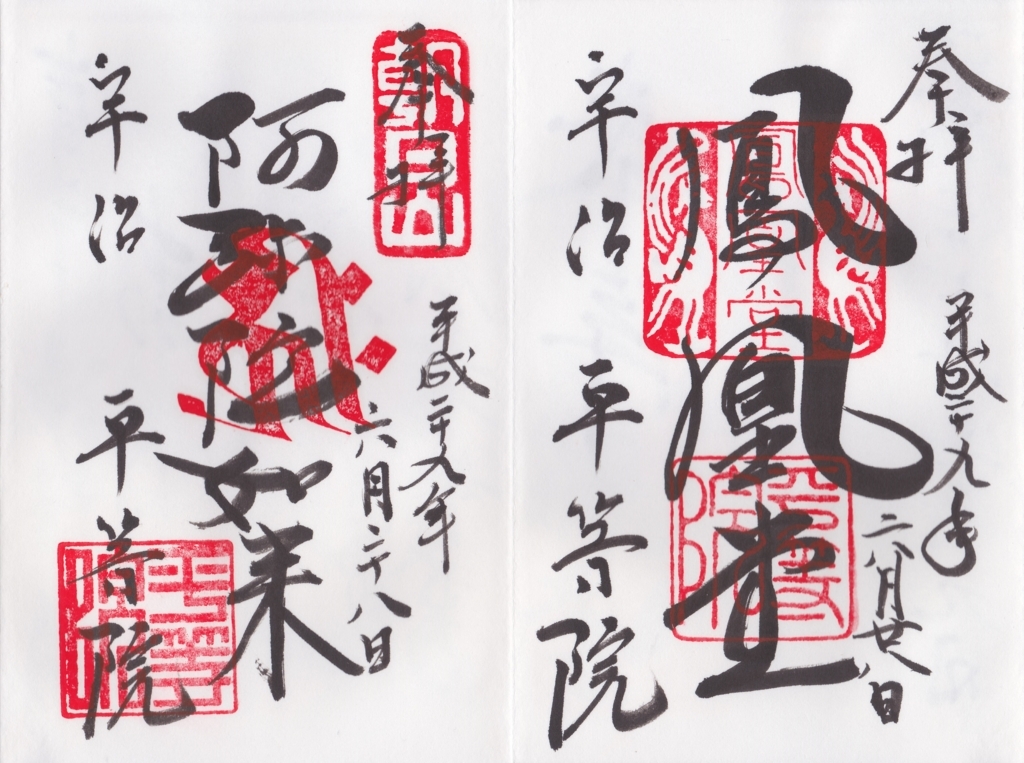 奉拝
平成二十九年
六月廿八日
鳳凰堂
宇治
平等院
鳳凰堂
奉拝
平成二十九年
六月二十八日
阿弥陀如来
宇治
平等院
平等院